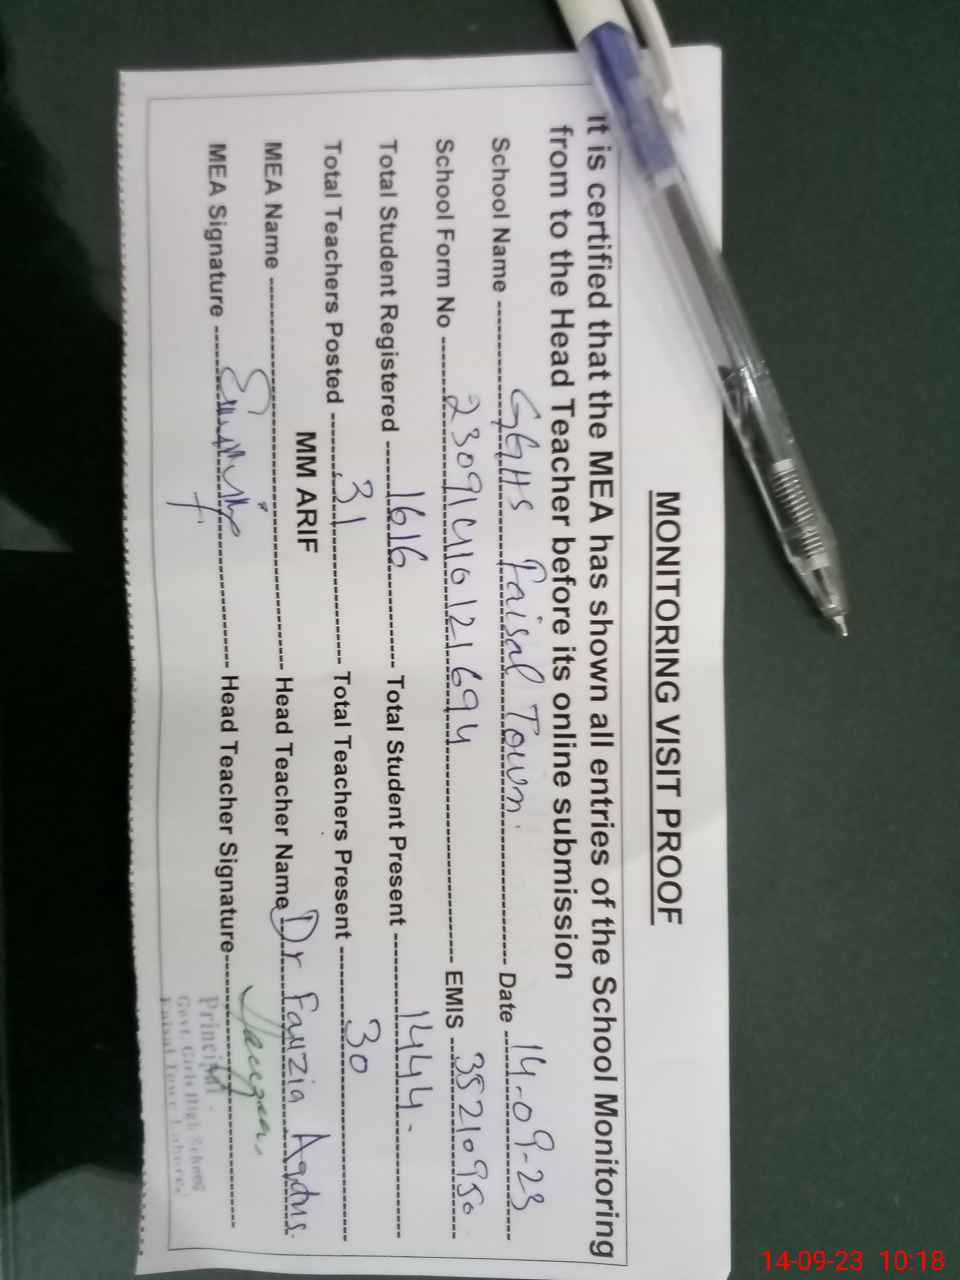 MONITORING VISIT PROOF
It is certified that the MEA has shown all entries of the School Monitoring
from to the Head Teacher before its online submission
School Name GGHS Faisal Town. Date 14-09-23
School Form No 23091410121694 EMIS 35210950.
Total Student Registered 1616 Total Student Present 1444.
Total Teachers Posted 31 Total Teachers Present 30
MEA Name MM ARIF Head Teacher Name Dr Fauzia Aqdus.
MEA Signature Head Teacher Signature
Principal
Govt. Girls High School
Faisal Town Lahore
14-09-23 10:18